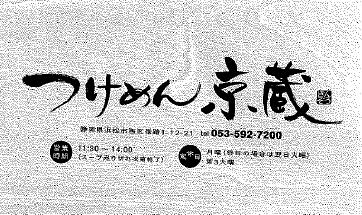 つけめん 京蔵
静岡県浜松市 1-12-21 tel 053-592-7200
営業時間 11:30〜14:00
(スープ売り切れ次第終了)
定休日 月曜(祭日の場合は翌日火曜)
第3火曜